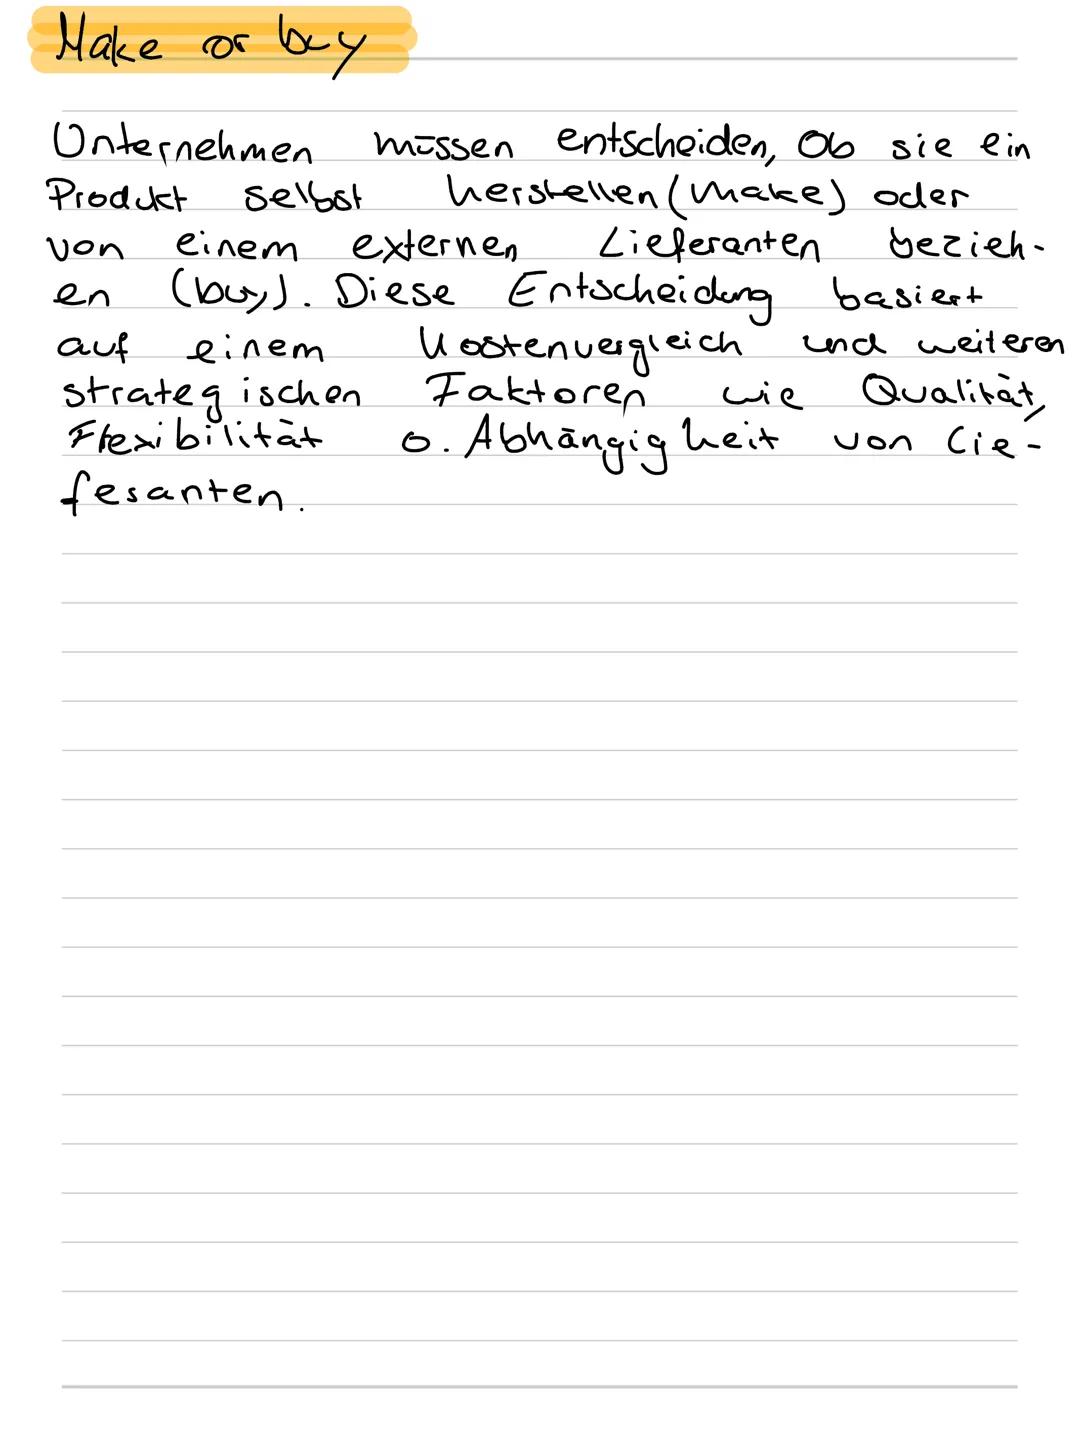 Make or buy
Unternehmen müssen entscheiden, Ob sie ein
Produkt selbst herstellen (Make) oder
von einem externen Lieferanten bezieh-
en (buy). Diese Entscheidung basiert
auf einem Kostenvergleich und weiteren
strategischen Faktoren wie Qualität,
Flexibilität o. Abhängigkeit von Lie-
feranten.